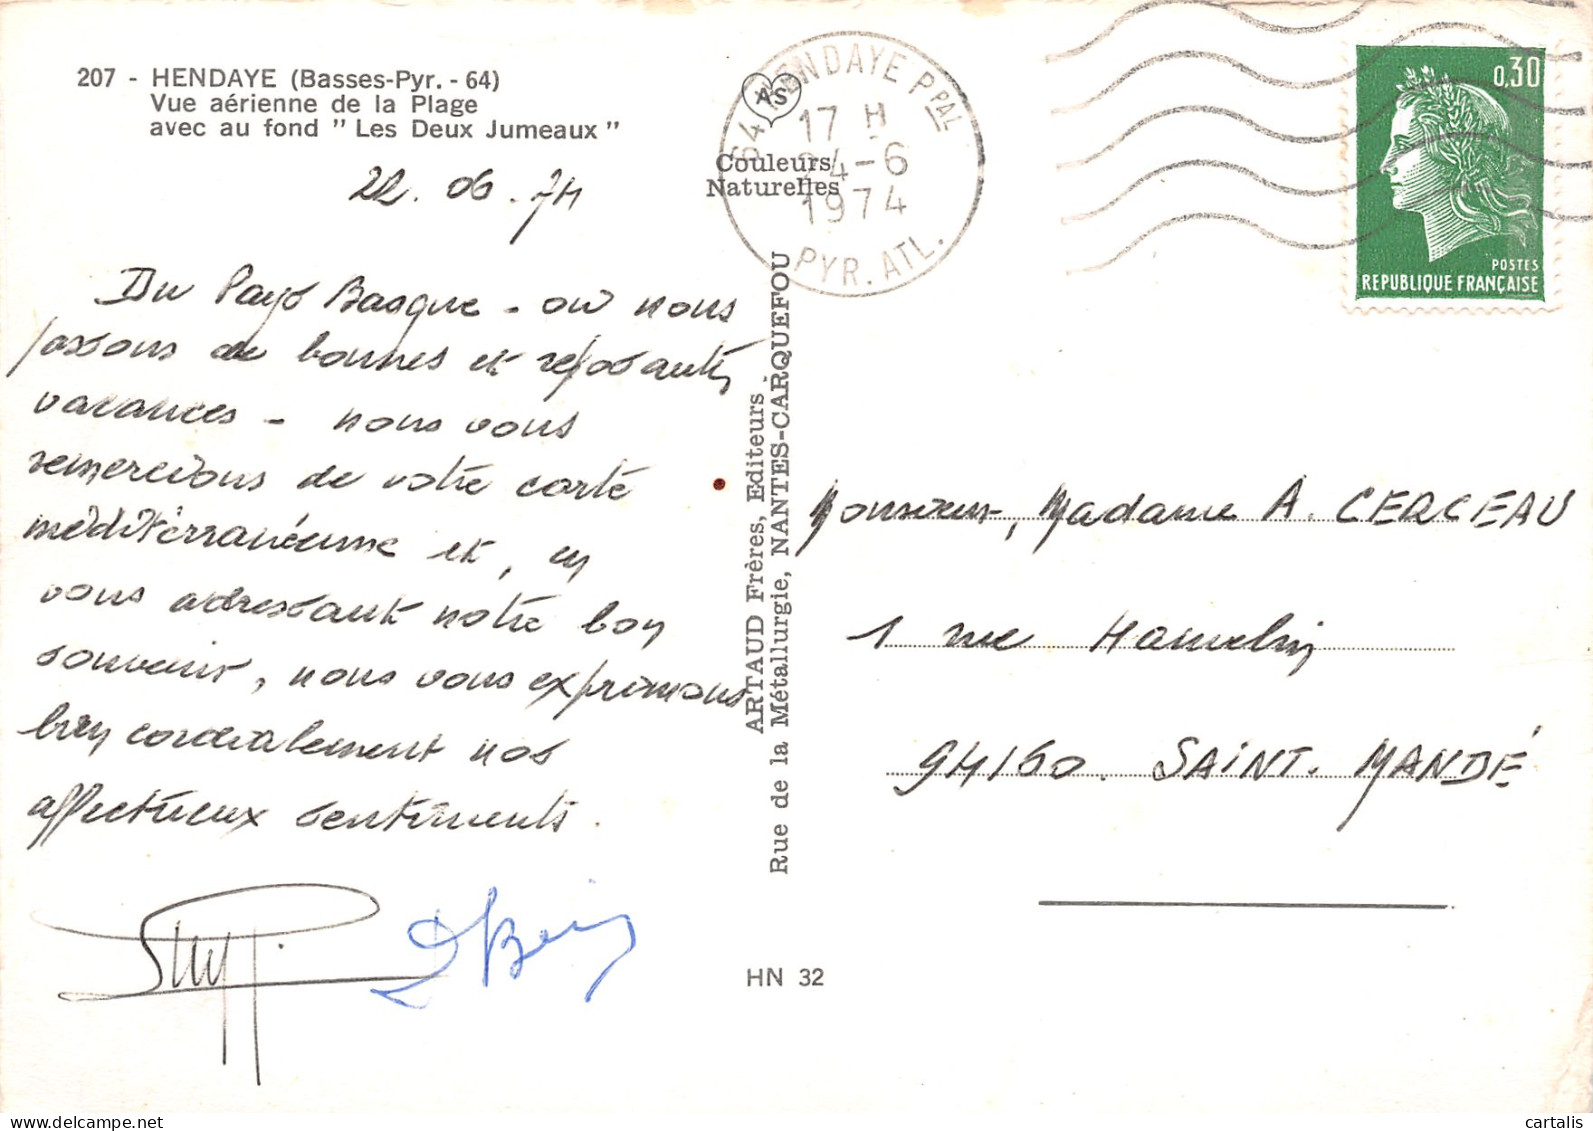 207 - HENDAYE (Basses-Pyr. - 64)
Vue aérienne de la Plage
avec au fond " Les Deux Jumeaux "
22.06.74
Du Pays Basque - où nous
passons de bonnes et reposantes
vacances - nous vous
remercions de votre carte
méditerranéenne et, en
vous adressant notre bon
souvenir, nous vous exprimons
bien cordialement nos
affectueux sentiments.
AS
Couleurs
Naturelles
64 HENDAYE PPAL
17 H
24-6
1974
PYR. ATL.
0,30
POSTES
REPUBLIQUE FRANÇAISE
ARTAUD Frères, Editeurs
Rue de la Métallurgie, NANTES-CARQUEFOU
Monsieur, Madame A. CERCEAU
1 rue Hamelin
94160. SAINT. MANDÉ
HN 32
Delcampe.net
cartalis